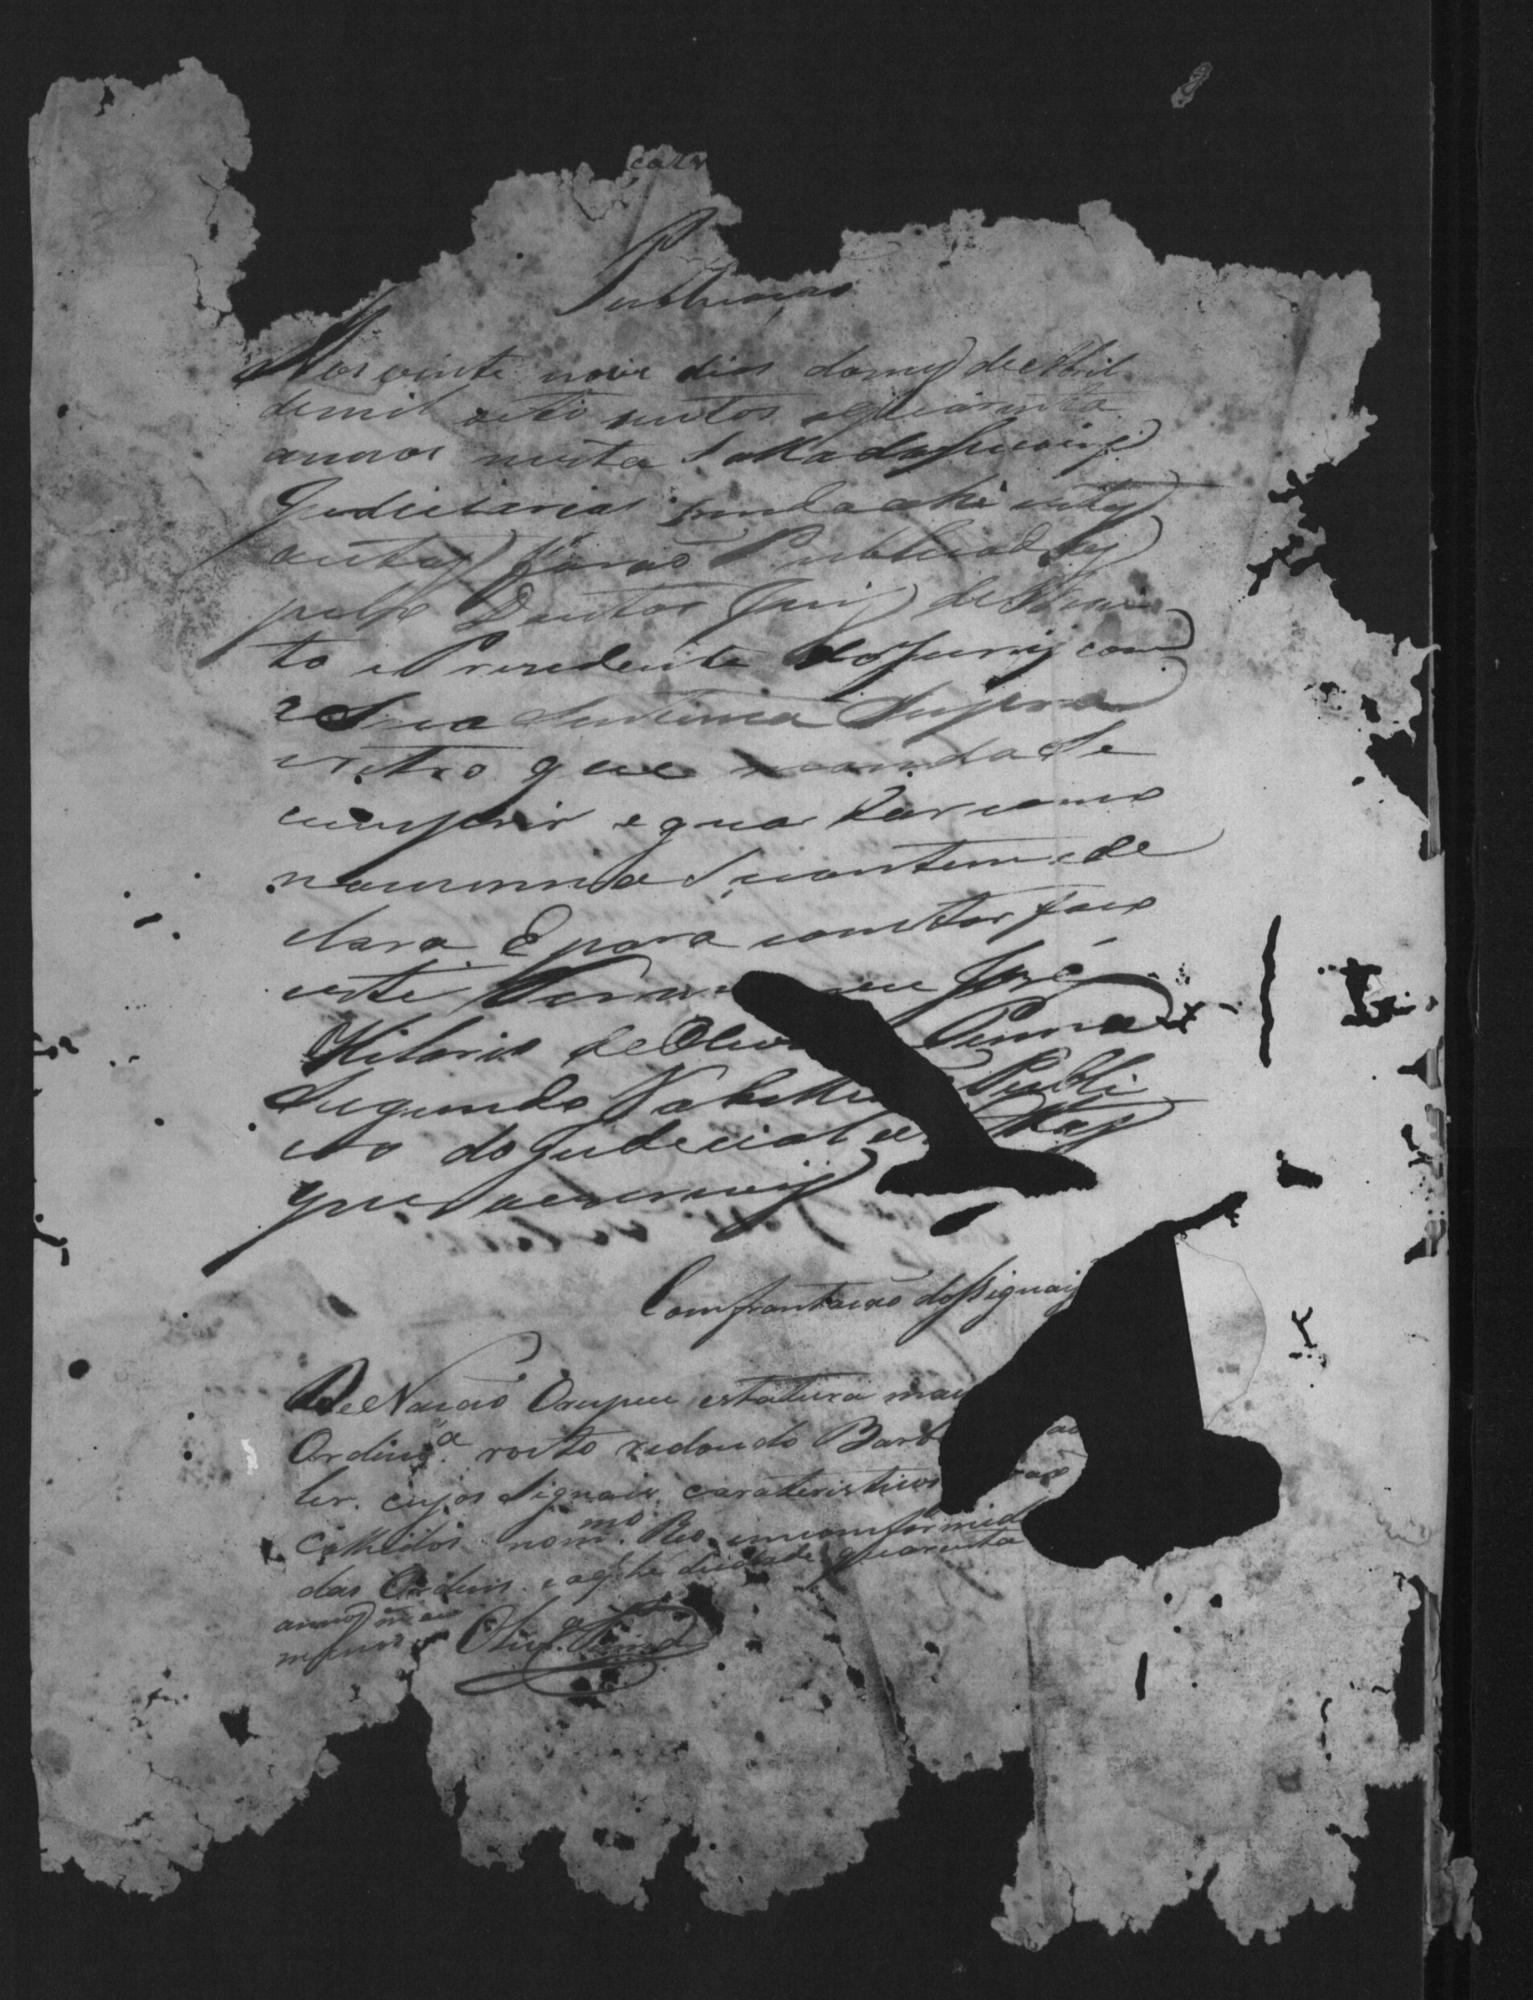 Publicação
Aos vinte nove dias do mez de Abril
de mil oito centos e quarenta
annos nesta Salla das Sessoins
Judiciarias sendo ahi estes
autos forão Publicados
pelo Doutor Juiz de Direi
to e Presidente do Jury com
a Sua Sentença Supra
retro que manda se
cumprir e guardar como
na mesma Se contem e de
clara. E para constar faço
este Termo eu José
Hilario de Oliv Penna
Segundo Tabelliam Publi
co do Judecial e Nottas
que o escrevy
Comfrontacão dos Signais
De Nação Oçupeu estatura mais
Ordinr.ª rosto redondo Barb
ler. cujos Signais carateristicos
colhidos no m.mo Reo, em conformid
das Ordens. e de idade quarenta
annos mais ou
menos Oliv.ª Penna